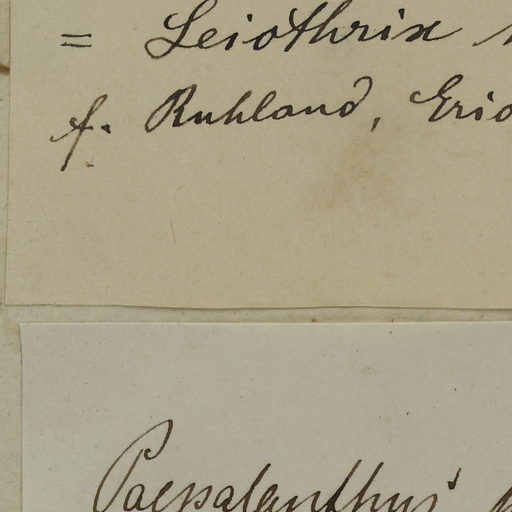 = Leiothrix
f. Ruhland, Erio
Paepalanthus